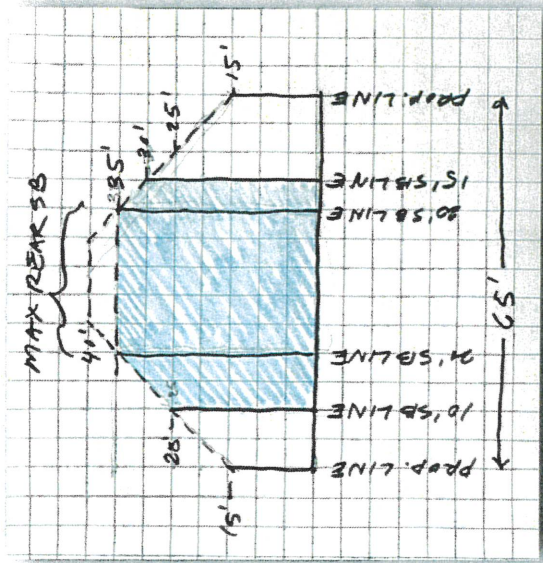 MAX REAR SB
40'
35'
30'
25'
15'
15'
PROP. LINE
10' SB LINE
21' SB LINE
20' SB LINE
15' SB LINE
PROP. LINE
65'